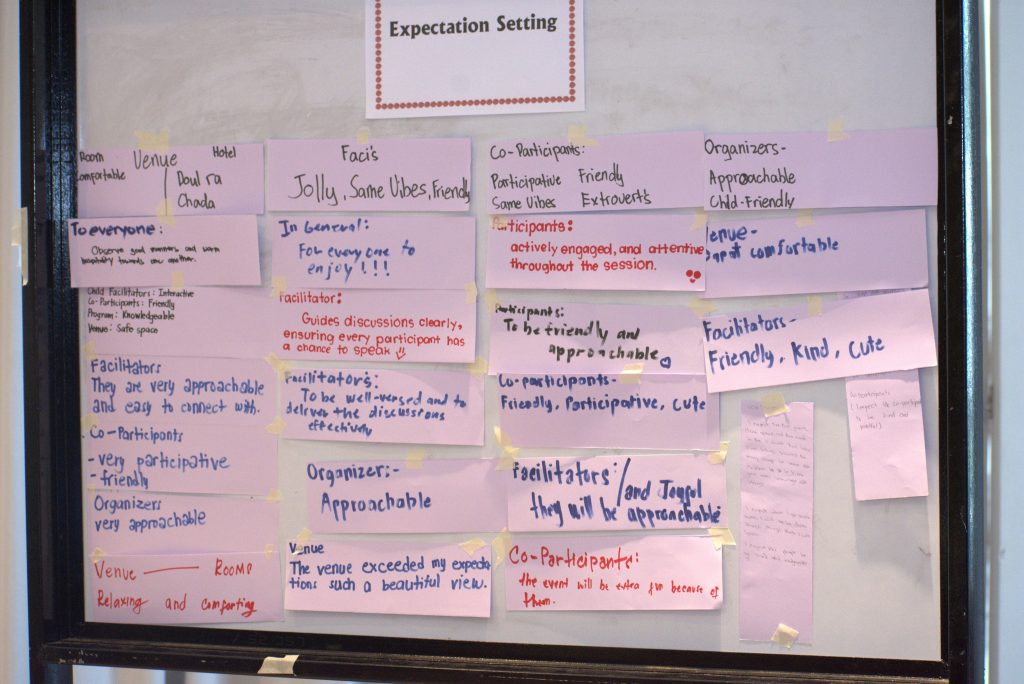 Expectation Setting
Room Venue Hotel
Comfortable Doul ra
Chada
Faci's
Jolly, Same Vibes, Friendly
Co-Participants:
Participative Friendly
Same Vibes Extroverts
Organizers-
Approachable
Child-Friendly
To everyone:
Observe good manners and warm
hospitality towards one another.
In General:
For everyone to
enjoy!!!
Participants:
actively engaged, and attentive
throughout the session.
Venue-
comfortable
Child Facilitators: Interactive
Co-Participants: Friendly
Program: Knowledgeable
Venue: Safe space
Facilitator:
Guides discussions clearly,
ensuring every participant has
a chance to speak
Participants:
To be friendly and
approachable
Facilitators-
Friendly, Kind, Cute
Facilitators
They are very approachable
and easy to connect with.
Facilitators:
To be well-versed and to
deliver the discussions
effectively
Co-participants-
Friendly, Participative, Cute
Co-Participants
-very participative
-friendly
Organizer:-
Approachable
Facilitators:
/and Joyful
they will be approachable
Organizers
very approachable
Venue
The venue exceeded my expecta
tions such a beautiful view.
Co-Participants:
the event will be extra fun because of
them.
Venue — ROOMS
Relaxing and comforting
to be kind and